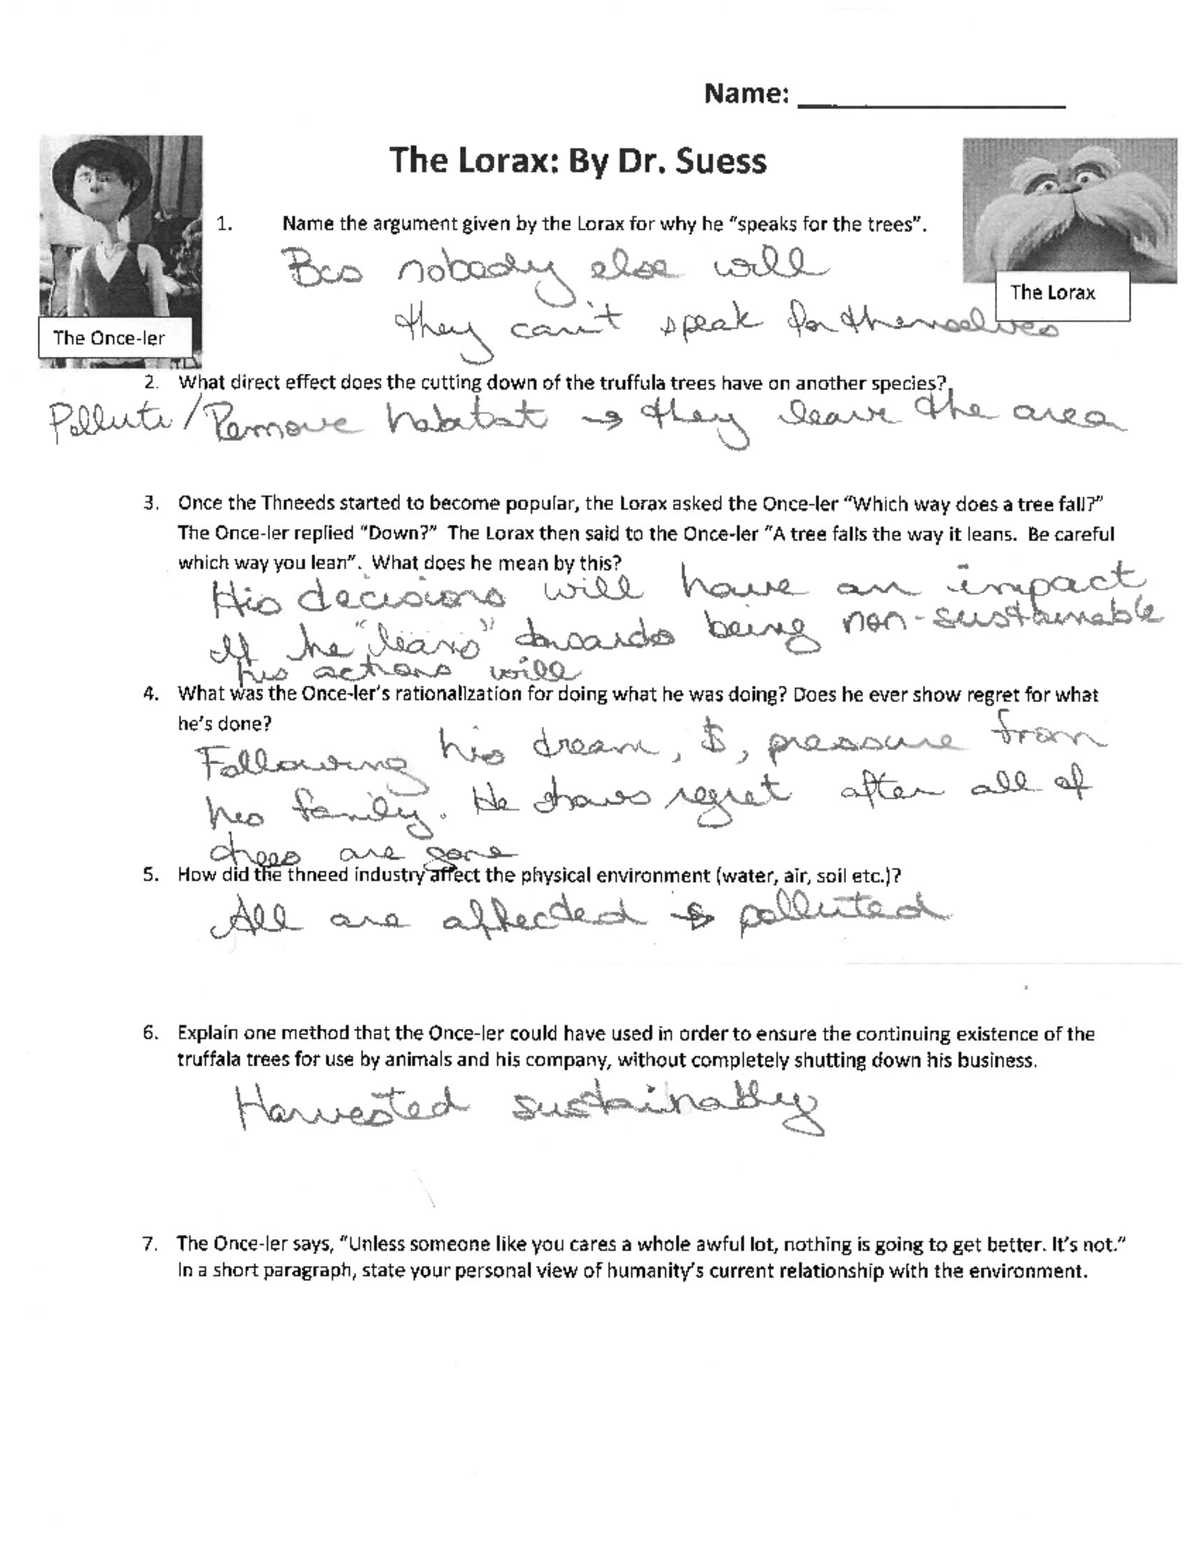 Name: ___________________
The Lorax: By Dr. Suess
The Once-ler
The Lorax
1. Name the argument given by the Lorax for why he “speaks for the trees”.
Bcs nobody else will
they can't speak for themselves
2. What direct effect does the cutting down of the truffula trees have on another species?
Pollute/Remove habitat → they leave the area
3. Once the Thneeds started to become popular, the Lorax asked the Once-ler “Which way does a tree fall?”
The Once-ler replied “Down?” The Lorax then said to the Once-ler “A tree falls the way it leans. Be careful
which way you lean”. What does he mean by this?
His decisions will have an impact
If he “leans” towards being non-sustainable
his actions will
4. What was the Once-ler’s rationalization for doing what he was doing? Does he ever show regret for what
he’s done?
Following his dream, $, pressure from
his family. He shows regret after all of
trees are gone
5. How did the thneed industry affect the physical environment (water, air, soil etc.)?
All are affected & polluted
6. Explain one method that the Once-ler could have used in order to ensure the continuing existence of the
truffala trees for use by animals and his company, without completely shutting down his business.
Harvested sustainably
7. The Once-ler says, “Unless someone like you cares a whole awful lot, nothing is going to get better. It’s not.”
In a short paragraph, state your personal view of humanity’s current relationship with the environment.